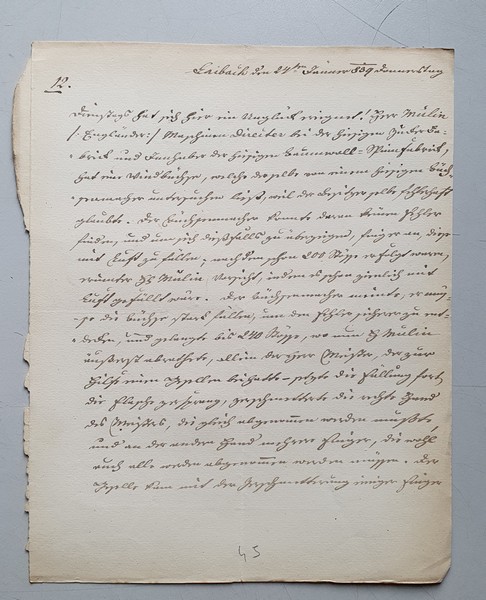 Laibach den 24ten Jänner 839 Donnerstag
12.
Dienstags hat sich hier ein Unglück ereignet! Herr Mulin
/: Engländer :/ Maschinen Direktor bei der hiesigen Zucker Fa-
brick und Innhaber der hiesigen Baumwoll-Spinnfabrick,
hat eine Windbüchse, welche derselbe von einem hiesigen Büch-
senmacher untersuchen ließ, weil der Besitzer selbe fehlerhaft
glaubte. Der Büchsenmacher konnte daran keinen Fehler
finden, und um sich dießfalls zu überzeugen, fing er an, diese
mit Luft zu füllen; nachdem schon 200 Stöße erfolgt waren,
Mulin Vorsicht, indem es schon ziemlich mit
Luft gefüllt wäre. Der Büchsenmacher meinte, er müs-
se die Büchse stark füllen, um den Fehler sicherer zu ent-
decken, und gelangte bis 240 Stöße, wo nun H Mulin
äußerst abrathete, allein der Herr Meister, der zur
Hilfe einen Gesellen beihatte – setzte die Füllung fort,
die Flasche zersprang, zerschmetterte die rechte Hand
des Meisters, die gleich abgenommen werden mußte,
und an der andern Hand mehrere Finger, die wohl
auch alle werden abgenommen werden müssen. Der
Geselle kam mit der Zerschmetterung einiger Finger
45